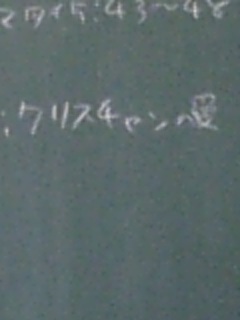 マタイ5:43~48
:クリスチャンの愛